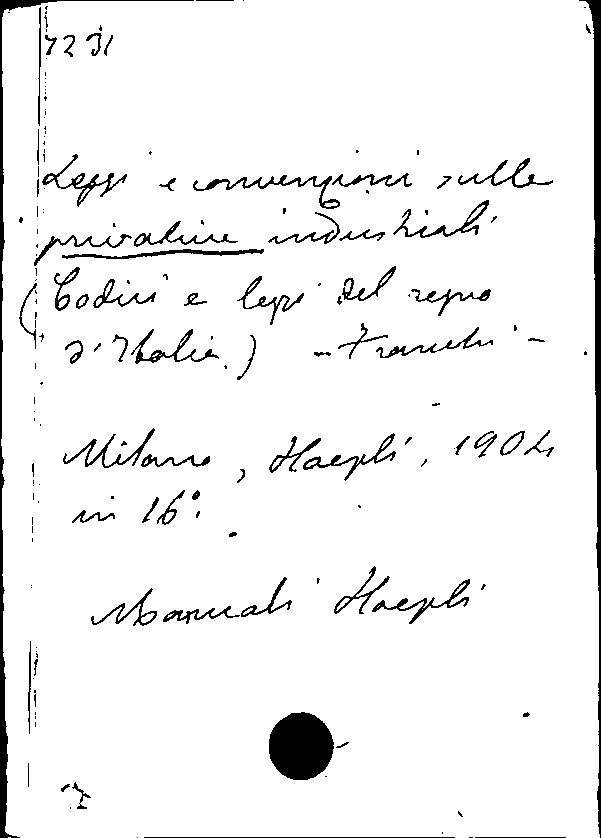 7231
Leggi e convenzioni sulle
privative industriali
(Codici e leggi del regno
d'Italia.) - Franchi -
Milano, Hoepli, 1904
in 16°.
Manuali Hoepli